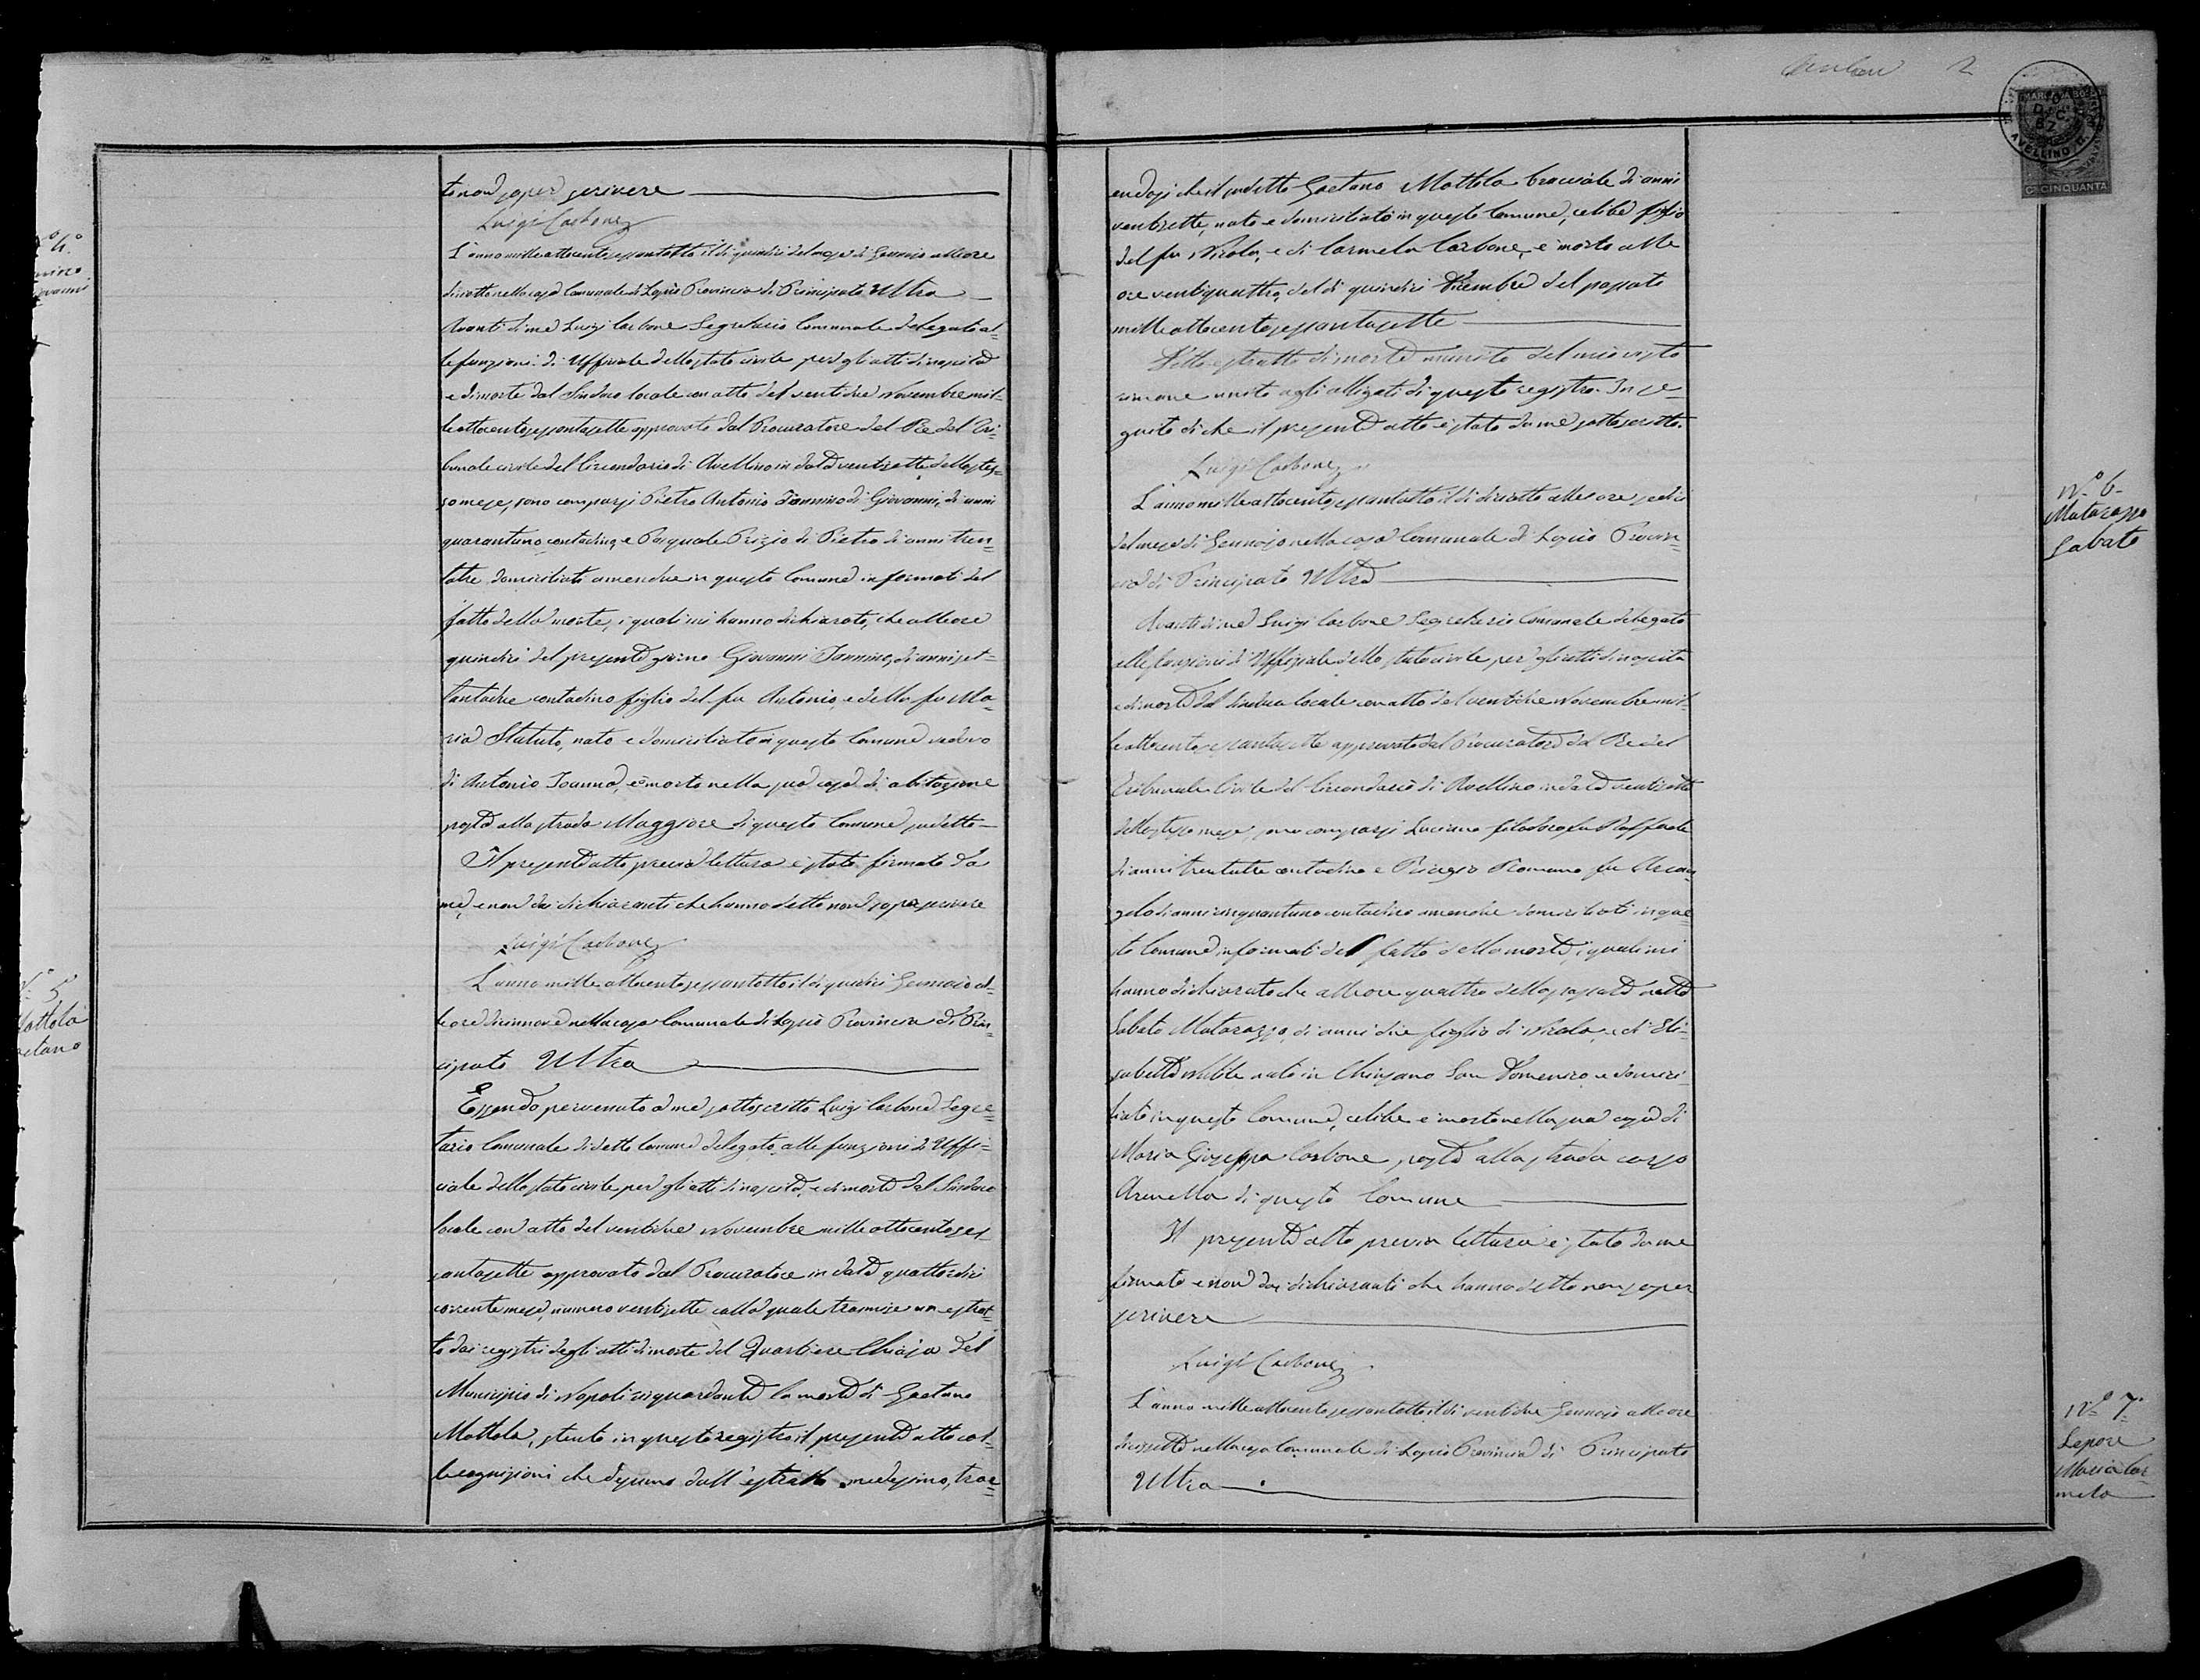 to non saper scrivere
Luigi Carbone
N.° 4.°
L'anno mille ottocento sessantotto il dì quindici del mese di Gennaio alle ore
diciotto nella casa Comunale di Lapio Provincia di Principato Ultra
Avanti di me Luigi Carbone Segretario Comunale delegato al-
le funzioni di Uffiziale dello stato civile per gli atti di nascita
e di morte dal Sindaco locale con atto del ventidue Novembre mil-
le ottocento sessantasette approvato dal Procuratore del Re del Tri-
bunale civile del Circondario di Avellino in data ventisette dello stes-
so mese, sono comparsi Pietro Antonio Iannino di Giovanni, di anni
quarantuno contadino, e Pasquale Prizio di Pietro di anni tren-
tatre, domiciliati amendue in questo Comune informati del
fatto della morte, i quali mi hanno dichiarato, che alle ore
quindici del presente giorno Giovanni Iannino, di anni set-
tantadue contadino figlio del fu Antonio, e della fu Ma-
ria Statuto, nato e domiciliato in questo Comune vedovo
di Antonia Ioanna, è morto nella sua casa di abitazione
posta alla strada Maggiore di questo Comune sudetto
Il presente atto previa lettura è stato firmato da
me, e non dai dichiaranti che hanno detto non saper scrivere
Luigi Carbone
N.° 5.°
Mottola
Gaetano
L'anno mille ottocento sessantotto il dì quindici Gennaio al-
le ore diecinnove nella casa Comunale di Lapio Provincia di Prin-
cipato Ultra
Essendo pervenuto a me sottoscritto Luigi Carbone Segre-
tario Comunale di detto Comune delegato alle funzioni di Uffi-
ciale dello stato civile per gli atti di nascita, e di morte dal Sindaco
locale con atto del ventidue Novembre mille ottocento ses-
santasette approvato dal Procuratore in data quattordici
corrente mese, numero ventisette colla quale trasmise un estrat-
to dai registri degli atti di morte del Quartiere Chiaja del
Municipio di Napoli riguardante la morte di Gaetano
Mottola, stendo in questo registro il presente atto col-
le cognizioni che desumo dall'estratto medesimo, tra-
2
AVELLINO
C. CINQUANTA
endosi che il sudetto Gaetano Mottola bracciale di anni
ventisette, nato e domiciliato in questo Comune, celibe figlio
del fu Nicola, e di Carmela Carbone, è morto alle
ore ventiquattro, del dì quindici Dicembre del passato
mille ottocento sessantasette
Detto estratto di morte munito del mio visto
rimane unito agli alligati di questo registro. In se-
guito di che il presente atto è stato da me sottoscritto.
Luigi Carbone
N.° 6.
Matarazzo
Sabato
L'anno mille ottocento sessantotto il dì diciotto alle ore sedici
del mese di Gennaio nella casa Comunale di Lapio Provin-
cia di Principato Ultra
Avanti di me Luigi Carbone Segretario Comunale delegato
alle funzioni di Uffiziale dello stato civile per gli atti di nascita
e di morte dal Sindaco locale con atto del ventidue Novembre mil-
le ottocento sessantasette approvato dal Procuratore del Re del
Tribunale Civile del Circondario di Avellino in data ventisette
dello stesso mese, sono comparsi Luciano Filadoro fu Raffaele
di anni trentatre contadino e Biagio Romano fu Arcan-
gelo di anni cinquantuno contadino amendue domiciliati in que-
sto Comune informati del fatto della morte, i quali mi
hanno dichiarato che alle ore quattro della passata notte
Sabato Matarazzo, di anni due figlio di Nicola, e di Eli-
sabetta nato in Chiusano San Domenico e domici-
liato in questo Comune, celibe è morto nella sua casa di
Maria Giuseppa Carbone posta alla strada
di questo Comune
Il presente atto previa lettura è stato da me
firmato e non dai dichiaranti che hanno detto non saper
scrivere
Luigi Carbone
N.° 7.
Lepore
Maria Car-
mela
L'anno mille ottocento sessantotto il dì ventidue Gennaio alle ore
diecissette nella casa Comunale di Lapio Provincia di Principato
Ultra